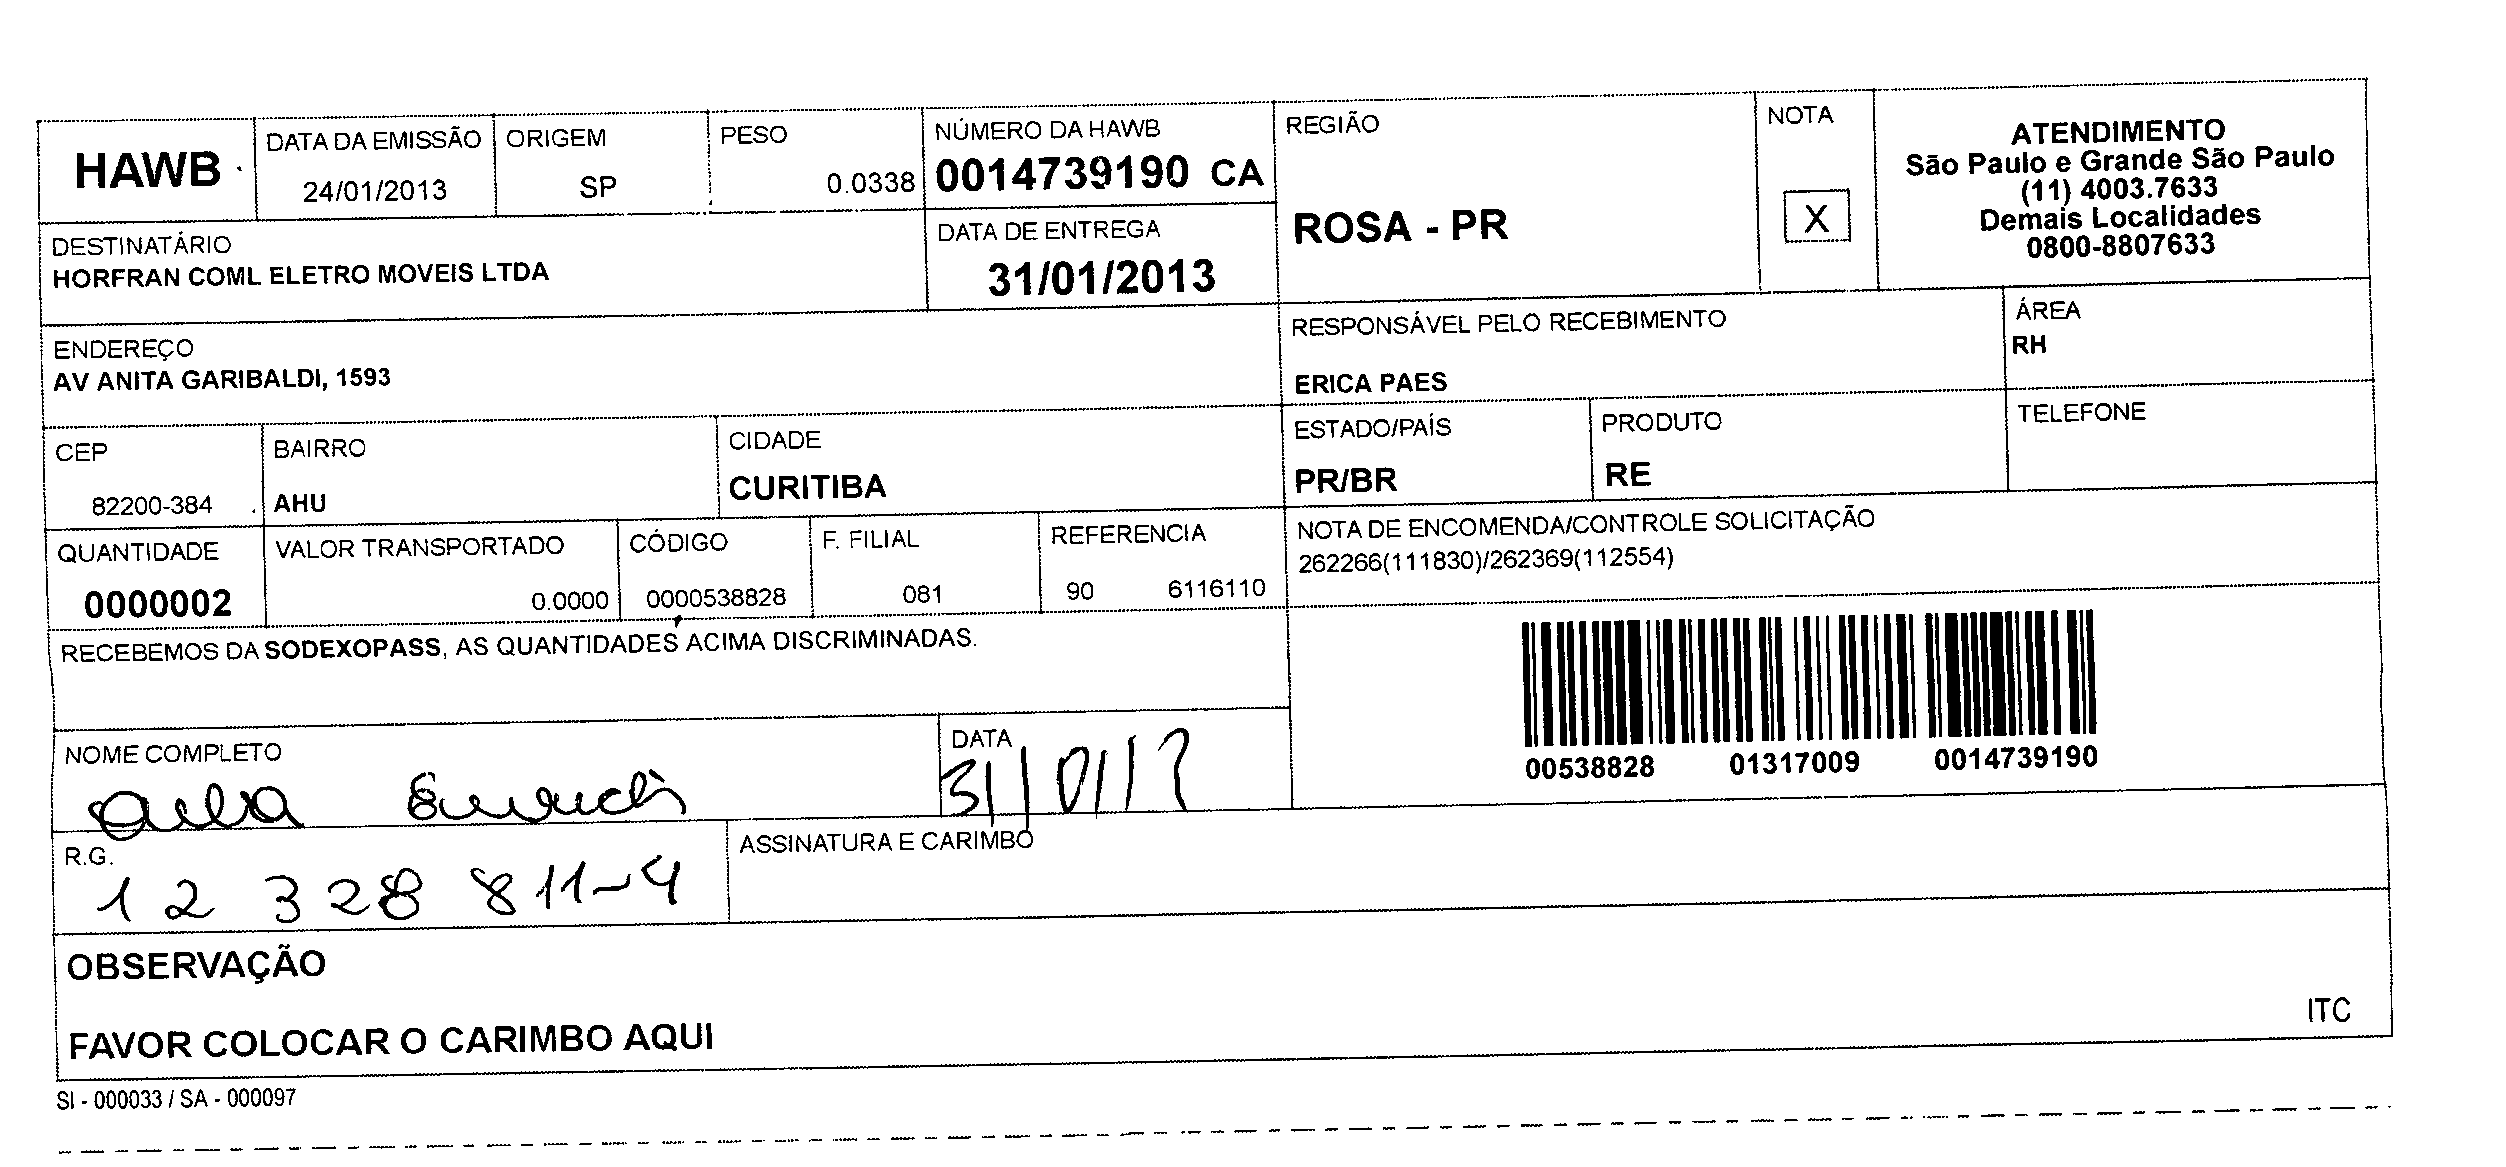 HAWB
DATA DA EMISSÃO
24/01/2013
ORIGEM
SP
PESO
0.0338
NÚMERO DA HAWB
0014739190 CA
REGIÃO
ROSA - PR
NOTA
X
ATENDIMENTO
São Paulo e Grande São Paulo
(11) 4003.7633
Demais Localidades
0800-8807633
DESTINATÁRIO
HORFRAN COML ELETRO MOVEIS LTDA
DATA DE ENTREGA
31/01/2013
ENDEREÇO
AV ANITA GARIBALDI, 1593
RESPONSÁVEL PELO RECEBIMENTO
ERICA PAES
ÁREA
RH
CEP
82200-384
BAIRRO
AHU
CIDADE
CURITIBA
ESTADO/PAÍS
PR/BR
PRODUTO
RE
TELEFONE
QUANTIDADE
0000002
VALOR TRANSPORTADO
0.0000
CÓDIGO
0000538828
F. FILIAL
081
REFERENCIA
90 6116110
NOTA DE ENCOMENDA/CONTROLE SOLICITAÇÃO
262266(111830)/262369(112554)
RECEBEMOS DA SODEXOPASS, AS QUANTIDADES ACIMA DISCRIMINADAS.
00538828 01317009 0014739190
NOME COMPLETO
DATA
31/01/1
R.G.
12 328 811-4
ASSINATURA E CARIMBO
OBSERVAÇÃO
FAVOR COLOCAR O CARIMBO AQUI
ITC
SI - 000033 / SA - 000097